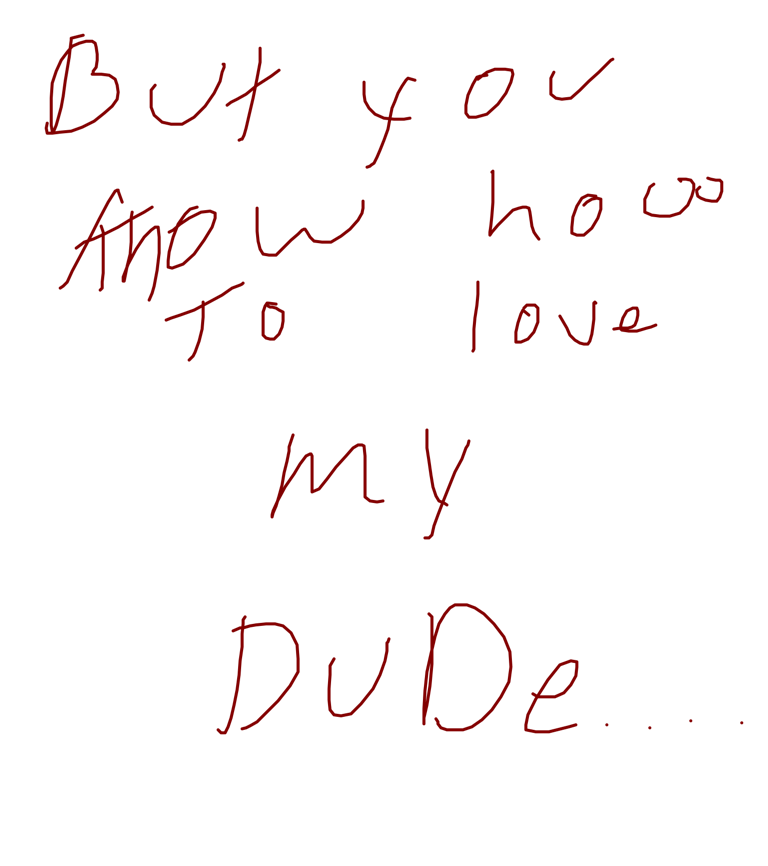 But you
know how
To love
my
DUDe....